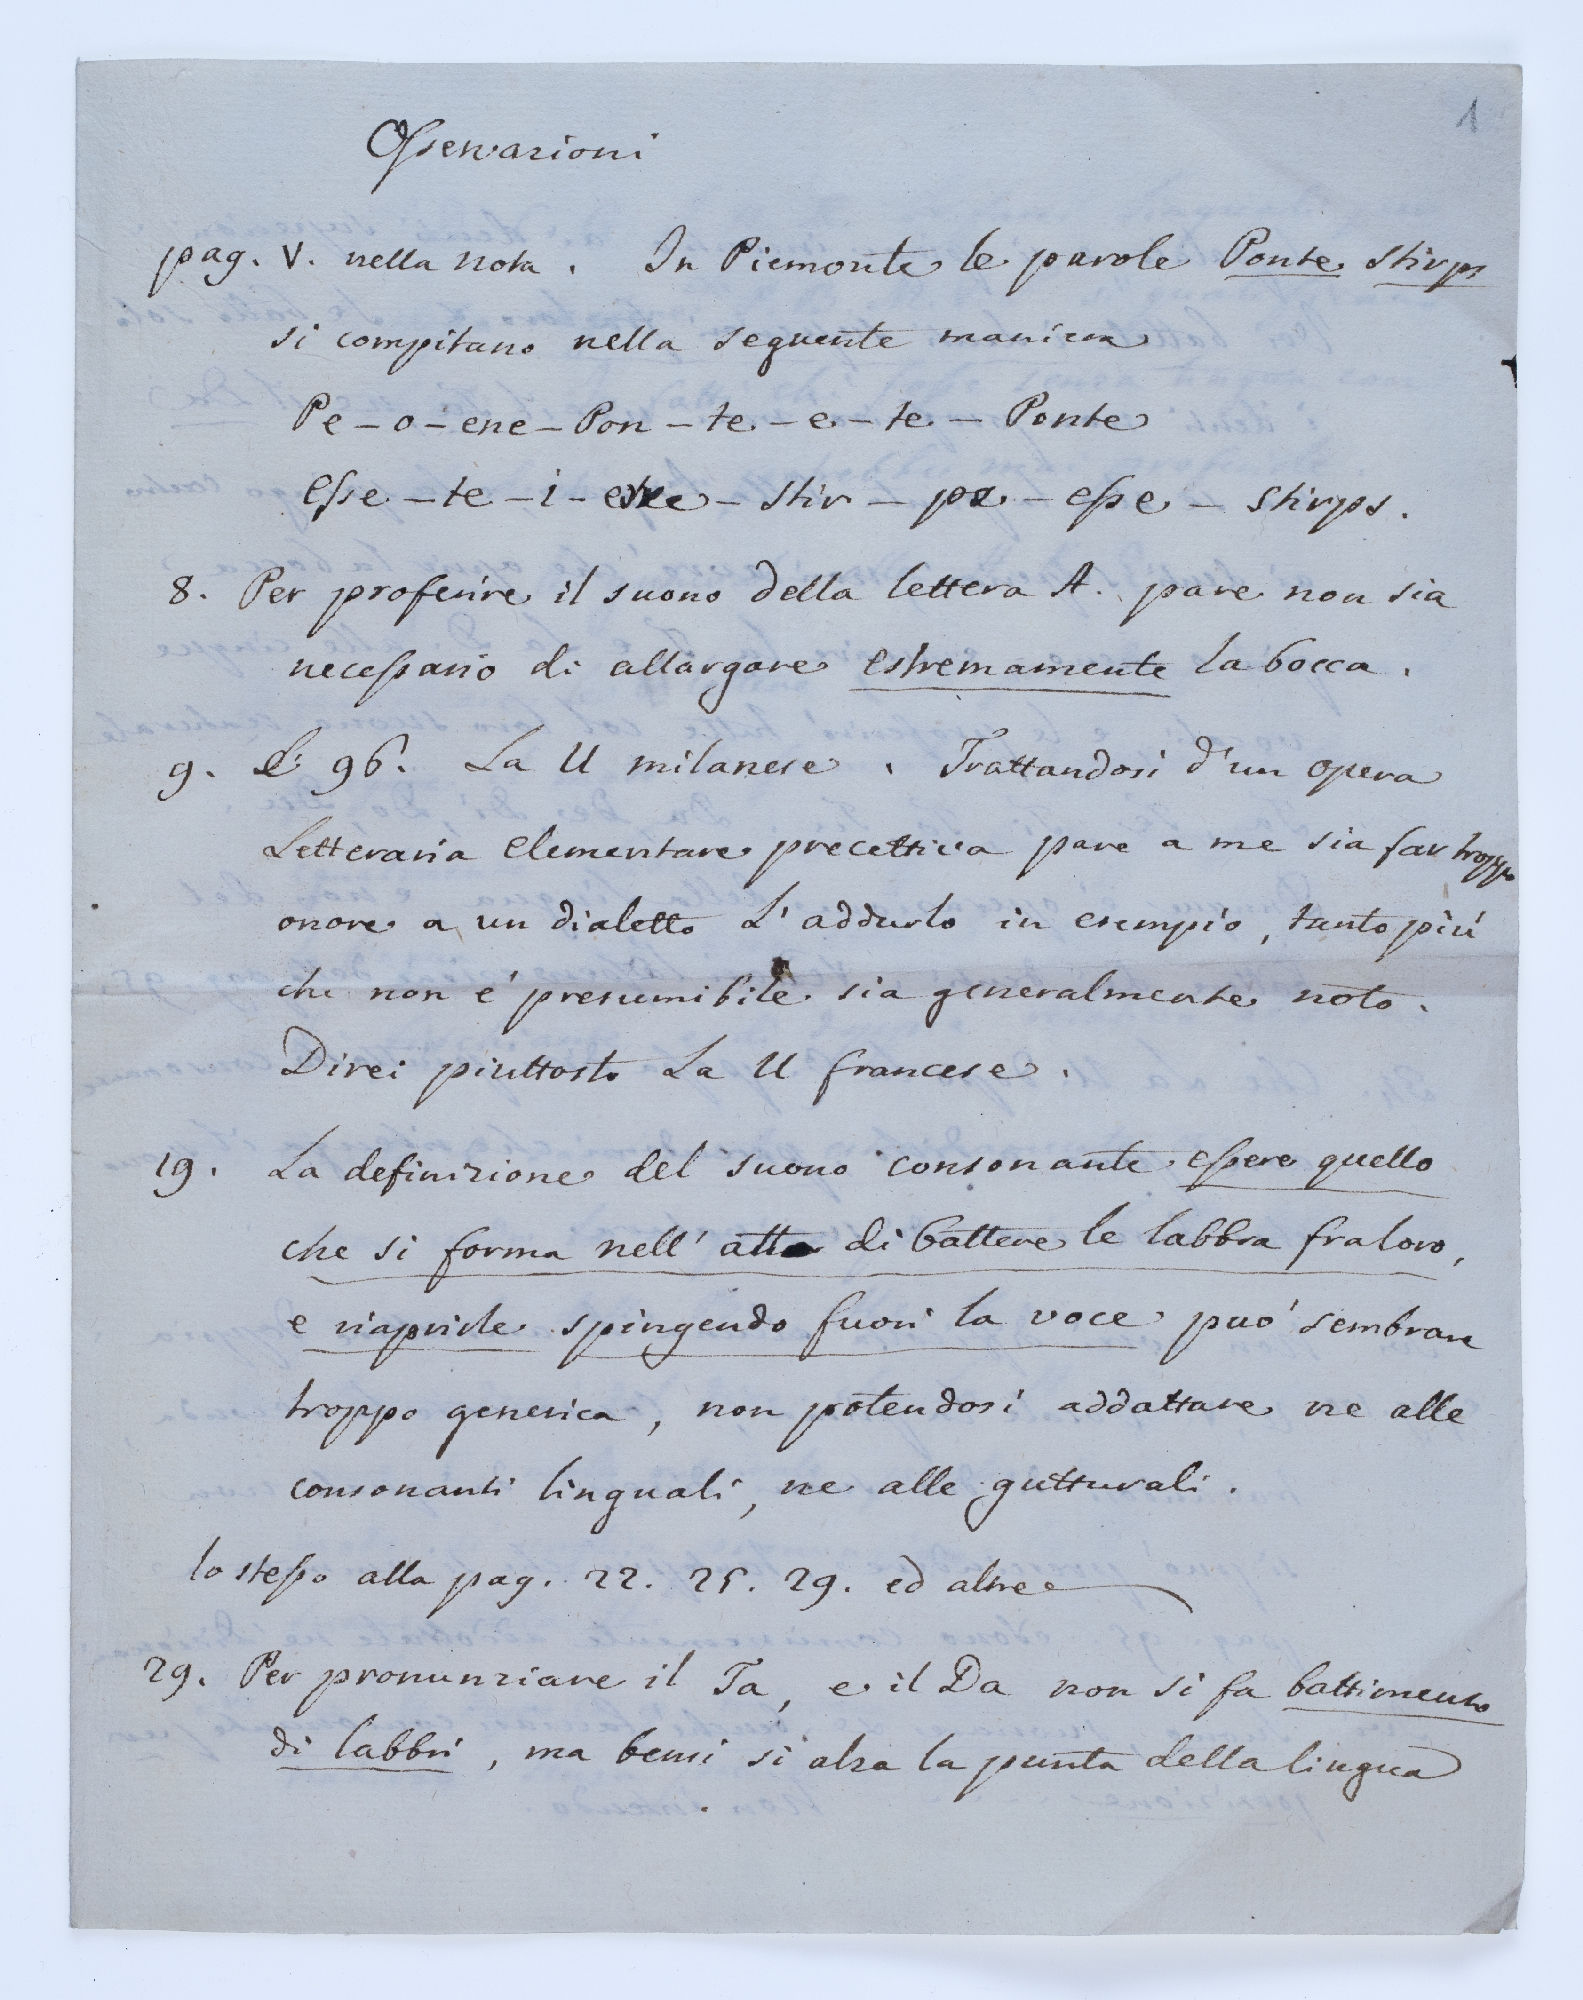 1
Osservazioni
pag. V. nella nota. In Piemonte le parole Ponte stirps
si compitano nella seguente maniera
Pe - o - ene - Pon - te - e - te - Ponte
Esse - te - i - erre - stir - pe - esse - stirps.
8. Per proferire il suono della lettera A. pare non sia
necessario di allargare estremamente la bocca.
9. E 96. La U milanese. Trattandosi d'un opera
Letteraria elementare precettiva pare a me sia far troppo
onore a un dialetto L'addurlo in esempio, tanto più
che non é presumibile sia generalmente noto.
Direi piuttosto La U francese.
19. La definizione del suono consonante essere quello
che si forma nell'atto di battere le labbra fra loro,
e riaprirle spingendo fuori la voce puó sembrare
troppo generica, non potendosi addattare ne alle
consonanti linguali, ne alle gutturali.
lo stesso alla pag. 22. 25. 29. ed altre
29. Per pronunziare il Ta, e il Da non si fa battimento
di labbri, ma bensi si alza la punta della lingua